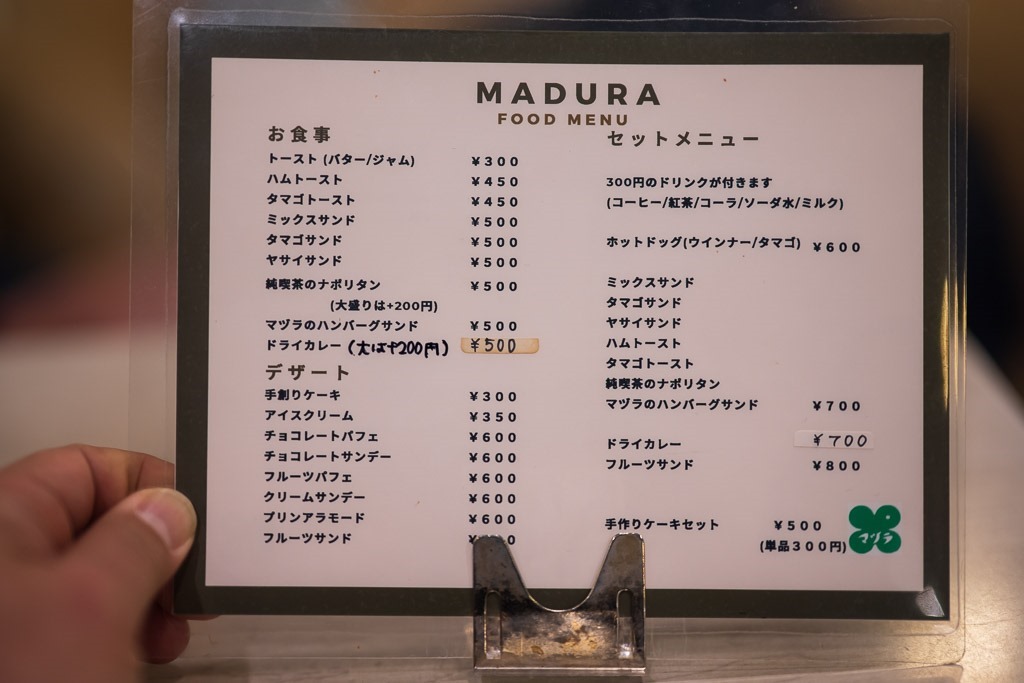 MADURA
FOOD MENU
お食事
トースト (バター/ジャム) ¥300
ハムトースト ¥450
タマゴトースト ¥450
ミックスサンド ¥500
タマゴサンド ¥500
ヤサイサンド ¥500
純喫茶のナポリタン ¥500
(大盛りは+200円)
マヅラのハンバーグサンド ¥500
ドライカレー (大は+200円) ¥500
デザート
手創りケーキ ¥300
アイスクリーム ¥350
チョコレートパフェ ¥600
チョコレートサンデー ¥600
フルーツパフェ ¥600
クリームサンデー ¥600
プリンアラモード ¥600
フルーツサンド
セットメニュー
300円のドリンクが付きます
(コーヒー/紅茶/コーラ/ソーダ水/ミルク)
ホットドッグ(ウインナー/タマゴ) ¥600
ミックスサンド
タマゴサンド
ヤサイサンド
ハムトースト
タマゴトースト
純喫茶のナポリタン
マヅラのハンバーグサンド ¥700
ドライカレー ¥700
フルーツサンド ¥800
手作りケーキセット ¥500
(単品300円)
マヅラ